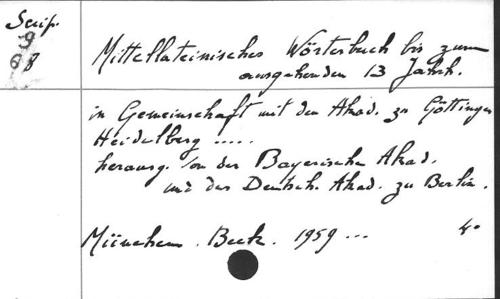 Scrip.
9
68
Mittellateinisches Wörterbuch bis zum
ausgehenden 13 Jahrh.
in Gemeinschaft mit den Akad. zu Göttingen
Heidelberg .....
herausg. von der Bayerischen Akad.
und der Deutsch. Akad. zu Berlin.
München. Beck. 1959 ... 4°